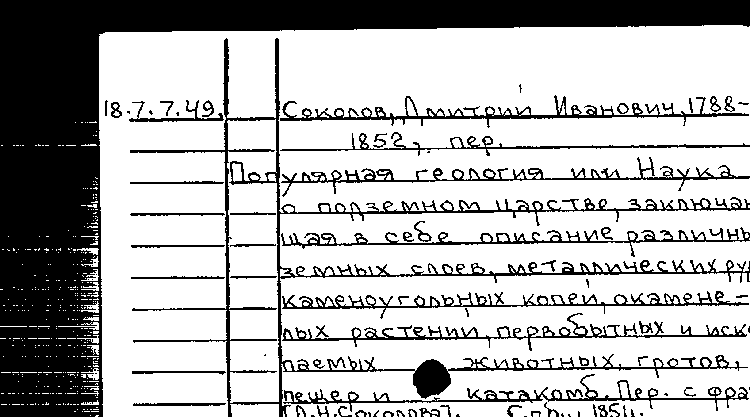 18.7.7.49. Соколов, Дмитрий Иванович, 1788-
1852, пер.
Популярная геология или Наука
о подземном царстве, заключаю
щая в себе описание различны
земных слоев, металлических руд
каменоугольных копей, окамене-
лых растений, первобытных и иско
паемых животных, гротов,
пещер и катакомб. Пер. с фра
[Д.И.Соколова]. С.пб., 1851.